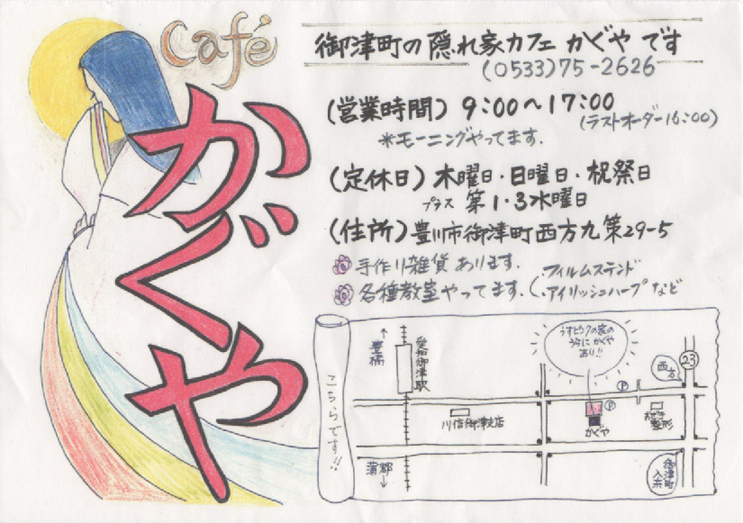 Café
かぐや
御津町の隠れ家カフェ かぐや です
(0533)75-2626
(営業時間) 9:00〜17:00
(ラストオーダー16:00)
※モーニングやってます.
(定休日) 木曜日・日曜日・祝祭日
プラス 第1・3水曜日
(住所) 豊川市御津町西方九第29-5
手作り雑貨 あります.
各種教室やってます. (・フィルムステンド
・アイリッシュハープ など
こちらです!!
↑
豊橋
愛知御津駅
うすピンクの家の
うらに かぐや
あり!!
西方
23
P
P
川信御津支店
かぐや
整形
蒲郡
↓
御津町
入浜